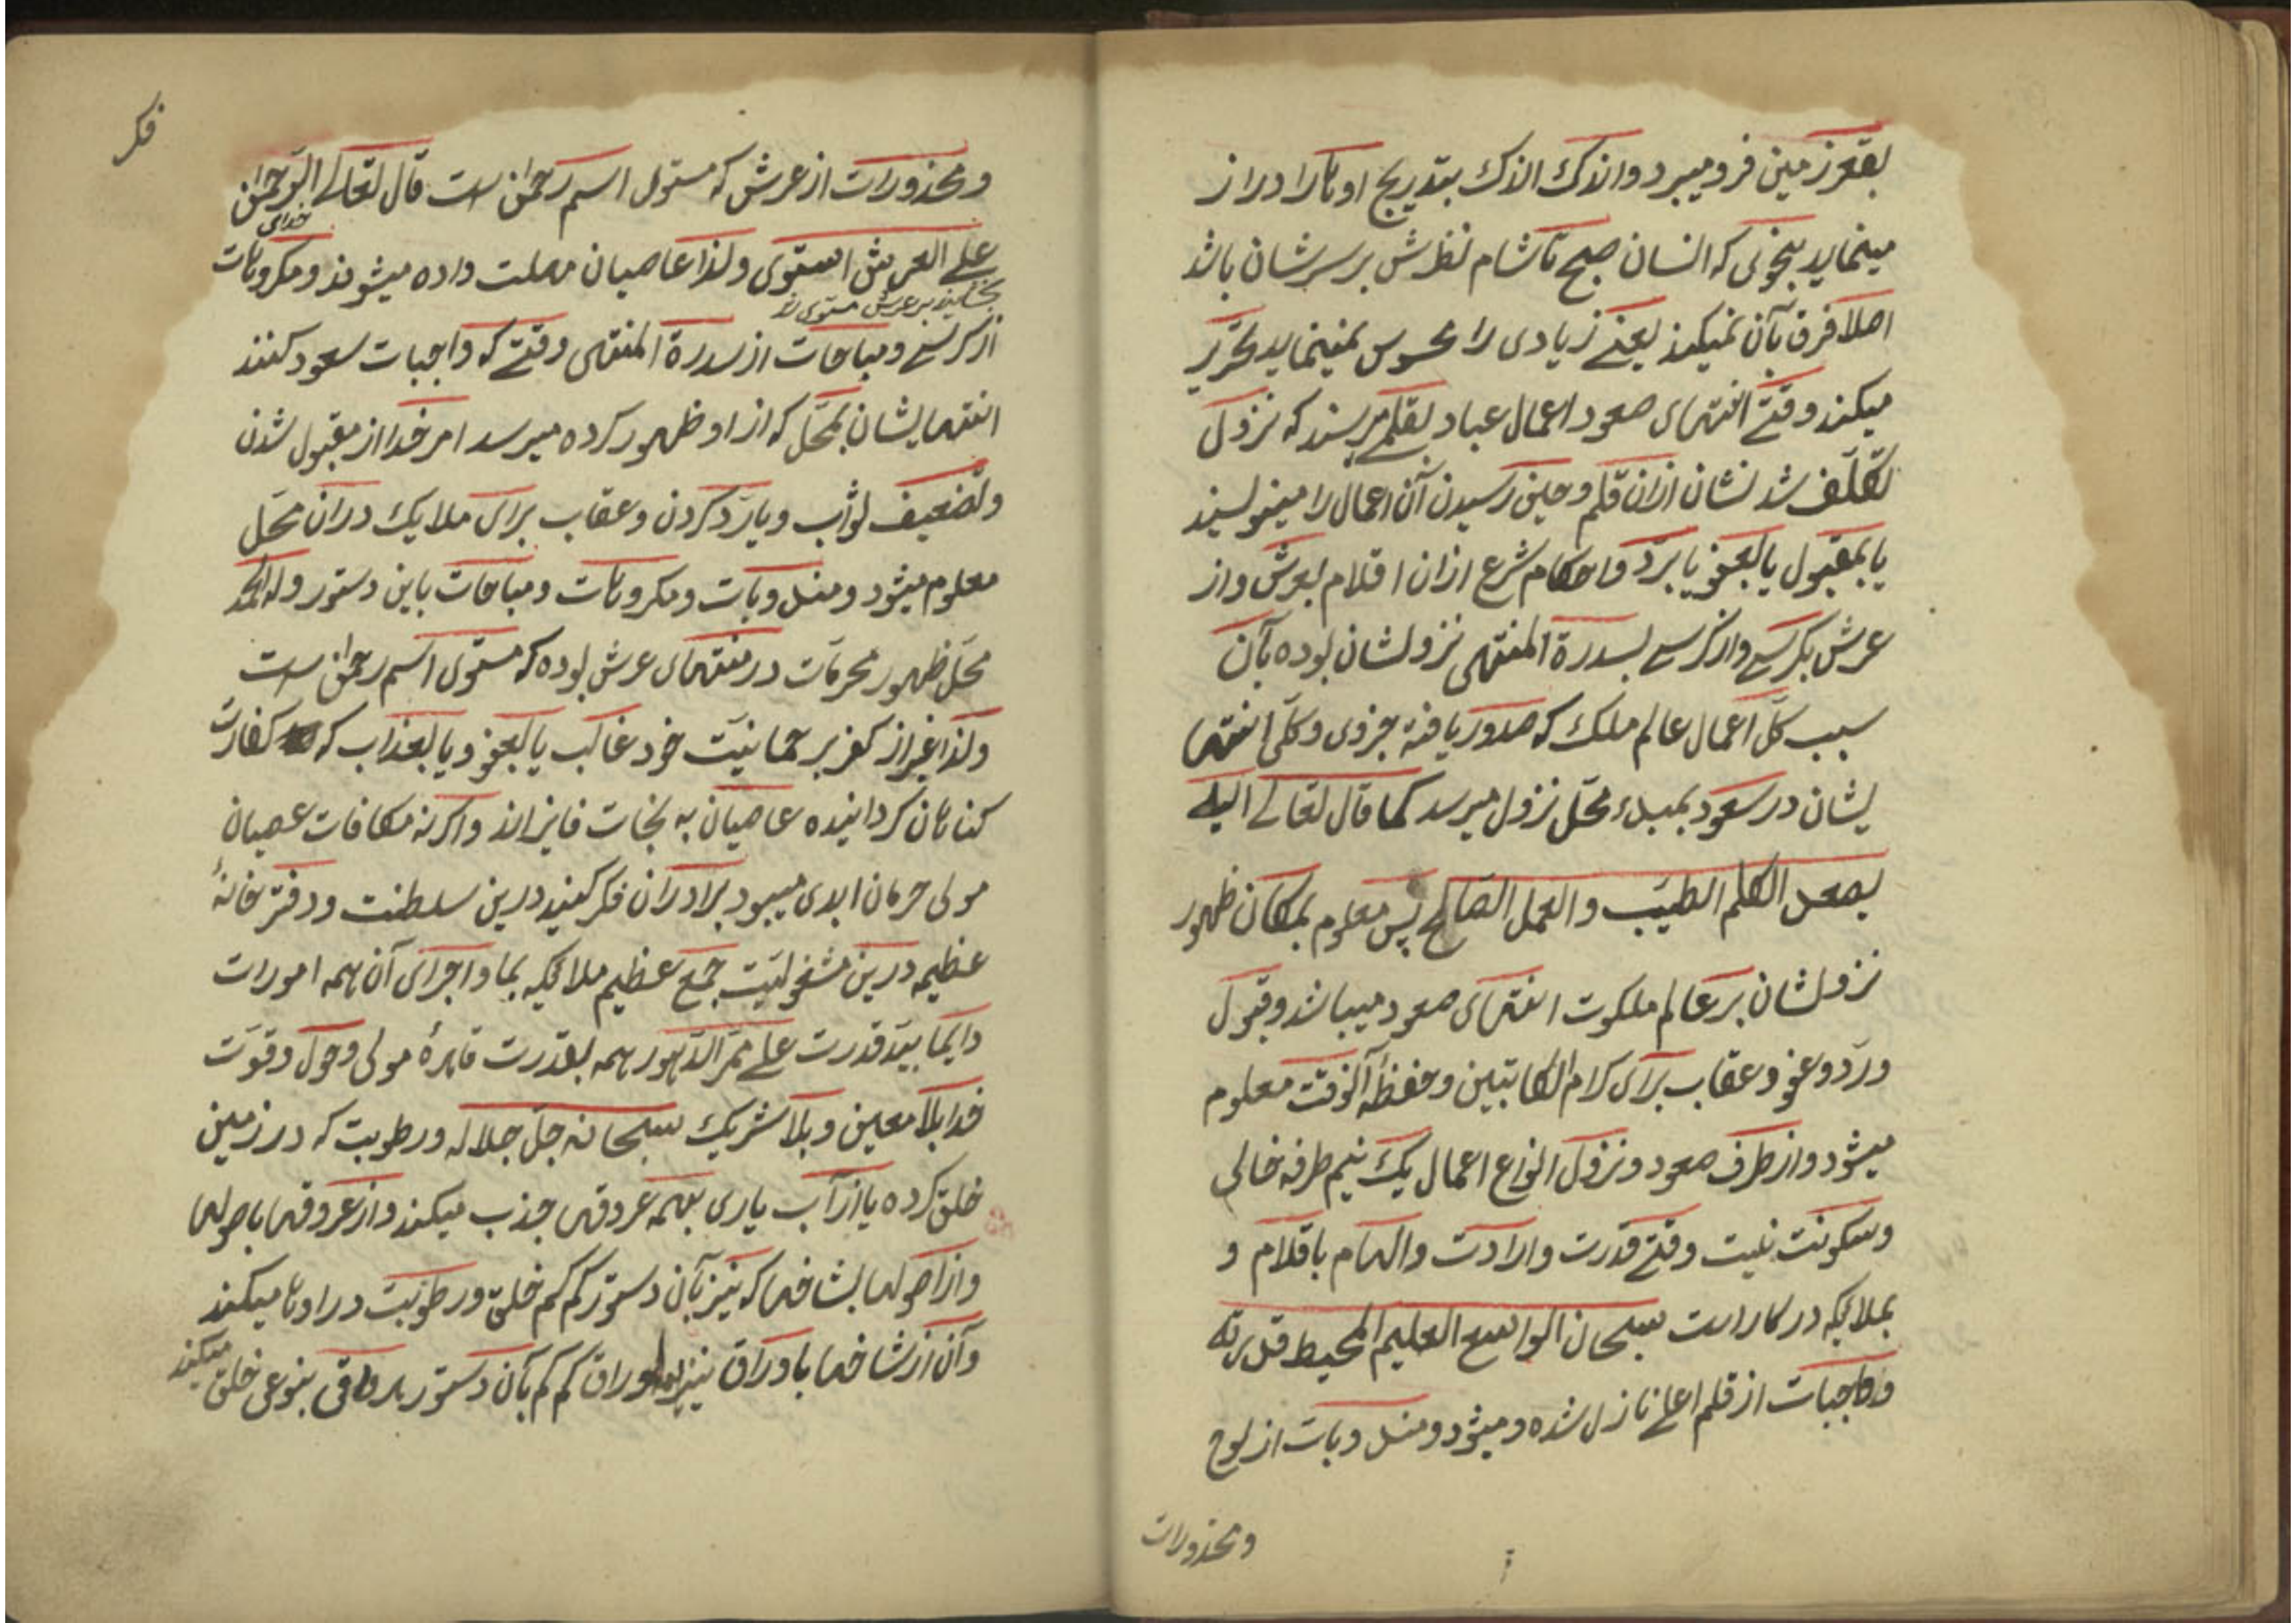 بقعر زمین فرو میبرد و اندک اندک بتدریج اوتاد را دراز
مینماید بنحوی که انسان صبح تا شام نظرش بر سرشان باشد
اصلا فرق بآن نمیکند یعنے زیادی را محسوس نمینماید تحریر
میکند وقتے انتهای صعود اعمال عباد بقلم میرسند که نزول
تکلف شد نشان ازان قلم و حین رسیدن آن اعمال را مینویسند
یا بمقبول یا بعفو یا برد و احکام شرع ازان اقلام بعرش و از
عرش بکرسے و از کرسے بسدرة المنتهی نزولشان بوده بآن
سبب کل اعمال عالم ملک که صدور یافته جزوی و کلی انتها
یشان در سعود بمبدء محل نزول میرسد کما قال تعالے الیه
یصعد الکلم الطیب و العمل الصالح پس معلوم بمکان ظهور
نزولشان بر عالم ملکوت انتهای صعود میباشد و قبول
ورد و عفو و عقاب برای کرام الکاتبین و حفظه آنوقت معلوم
میشود و از طرف صعود و نزول انواع اعمال یک نیم طرفه خالی
و سکونت نیست وقتے قدرت و ارادت و الهام باقلام و
بملائکه در کار است سبحان الواسع العلیم المحیط قدرته
و واجبات از قلم اعلے نازل شده و میشود و مندوبات از لوح
و محذورات
فکر
و محذورات از عرش که مستوی اسم رحمن است قال تعالے الرحمن
خدای
علے العرش استوی و لذا عاصیان مهلت داده میشوند و مکروهات
بخشاینده بر عرش مستوی شد
از کرسے و مباحات از سدرة المنتهی وقتے که واجبات سعود کنند
انتهایشان بمحل که از او ظهور کرده میرسد امر خدا از مقبول شدن
و تضعیف ثواب و یا رد کردن و عقاب برای ملایک دران محل
معلوم میشود و مندوبات و مکروهات و مباحات باین دستور و له الحمد
محل ظهور محرمات در منتهای عرش بوده که مستوی اسم رحمن است
و لذا غیر از کفر بر حمانیت خود غالب یا بعفو و یا بعذاب که کفارت
کناهان کردانیده عاصیان به نجات فایز اند و اکرنه مکافات عصیان
مولی حرمان ابدی میبود برادران فکر کنید درین سلطنت و دفتر خانهٔ
عظیمه درین مشغولیت جمع عظیم ملائکه بما و اجرای آن همه امورات
دایما بید قدرت علے ممر الدهور همه بقدرت قاهرهٔ مولی و حول و قوت
خدا بلا معین و بلا شریک سبحانه جل جلاله و رطوبت که در زمین
خلق کرده یا از آب یاری بهمه عروقها جذب میکند و از عروقها باصولها
و از اصولها بشاخها که نیز بآن دستور کم کم خلق و رطوبت در اوها میکند
و آن از شاخها باوراق نیز اوراق کم کم بآن دستور بنوعی خلق
میکند